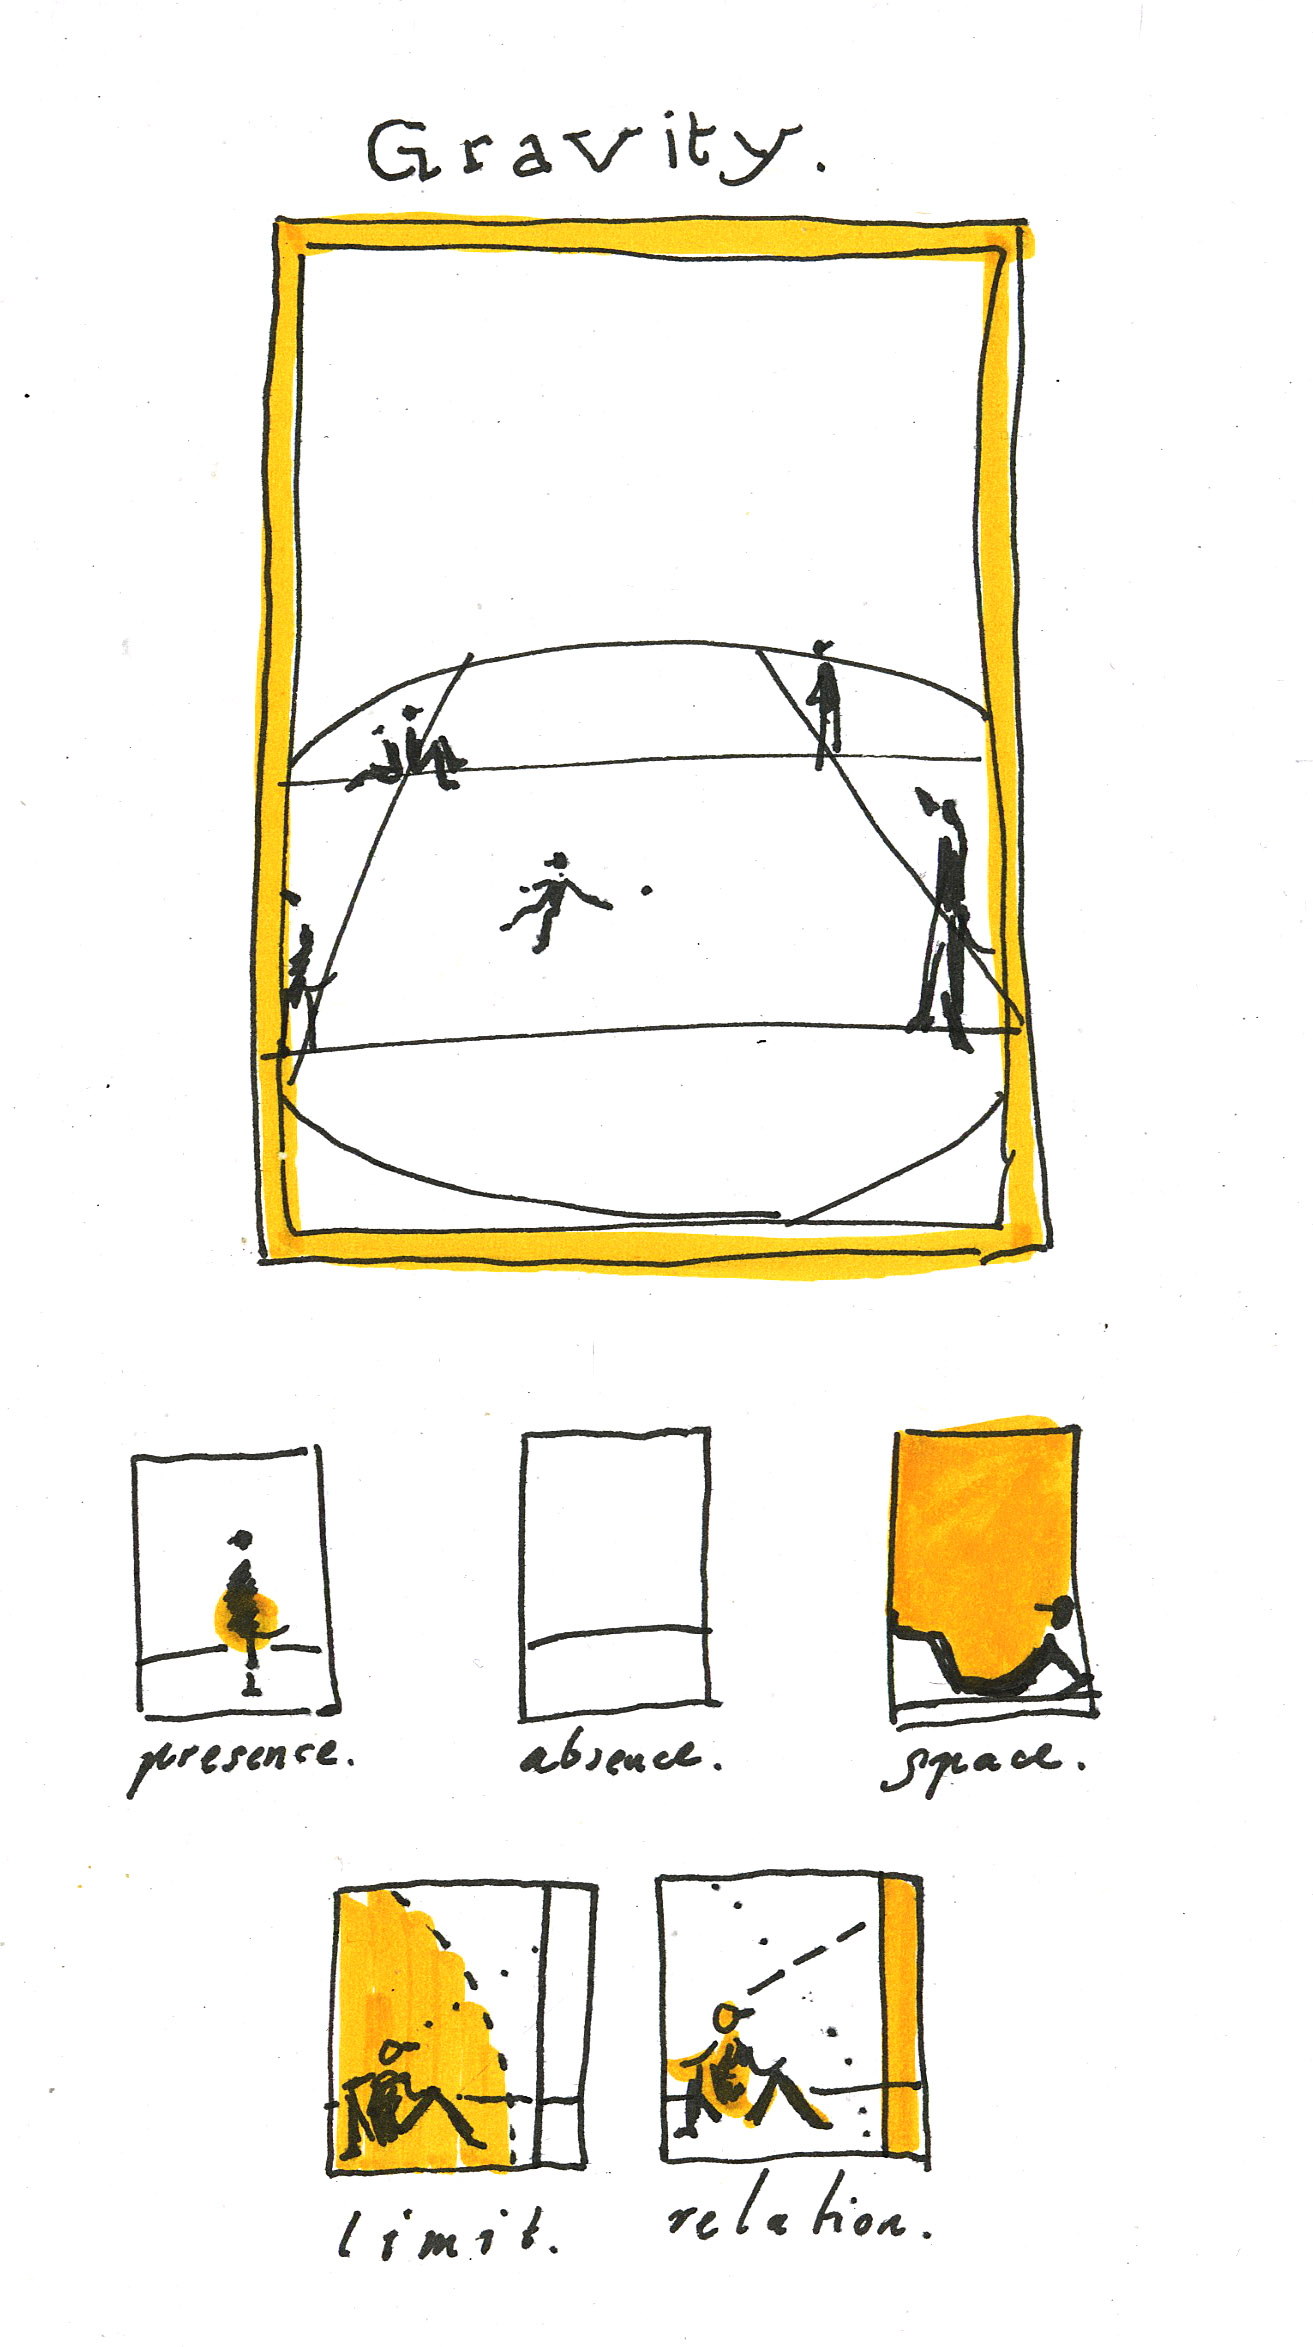 Gravity.
presence. absence. space.
limit. relation.